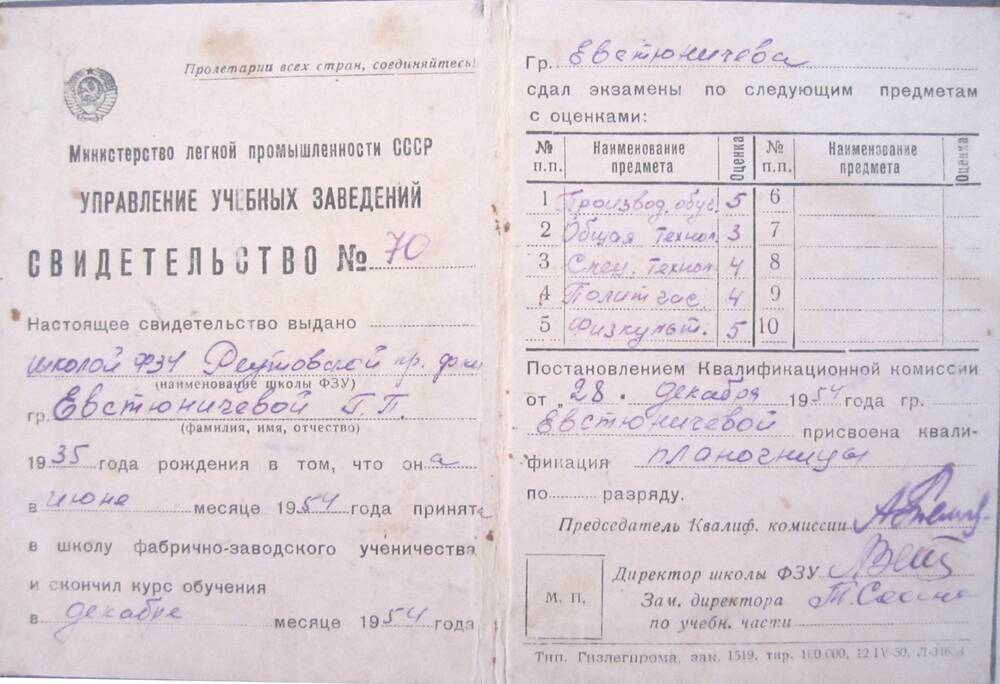 Пролетарии всех стран, соединяйтесь!
Министерство легкой промышленности СССР
УПРАВЛЕНИЕ УЧЕБНЫХ ЗАВЕДЕНИЙ
СВИДЕТЕЛЬСТВО № 70
Настоящее свидетельство выдано
школой ФЗУ Реутовской пр. ф-ки
(наименование школы ФЗУ)
гр. Евстюничевой Г.П.
(фамилия, имя, отчество)
1935 года рождения в том, что она
в июне месяце 1954 года принята
в школу фабрично-заводского ученичества
и окончил курс обучения
в декабре месяце 1954 года
Гр. Евстюничева
сдал экзамены по следующим предметам
с оценками:
№ п.п. Наименование предмета Оценка № п.п. Наименование предмета Оценка
1 Производ. обуч. 5 6
2 Общая технол. 3 7
3 Спец. технол. 4 8
4 Политчас. 4 9
5 Физкульт. 5 10
Постановлением Квалификационной комиссии
от „28" декабря 1954 года гр.
Евстюничевой присвоена квали-
фикация планочницы
по разряду.
Председатель Квалиф. комиссии
М. П.
Директор школы ФЗУ
Зам. директора
по учебн. части
Тип. Гизлегпрома, зак. 1519, тир. 100 000, 12 IV-50,